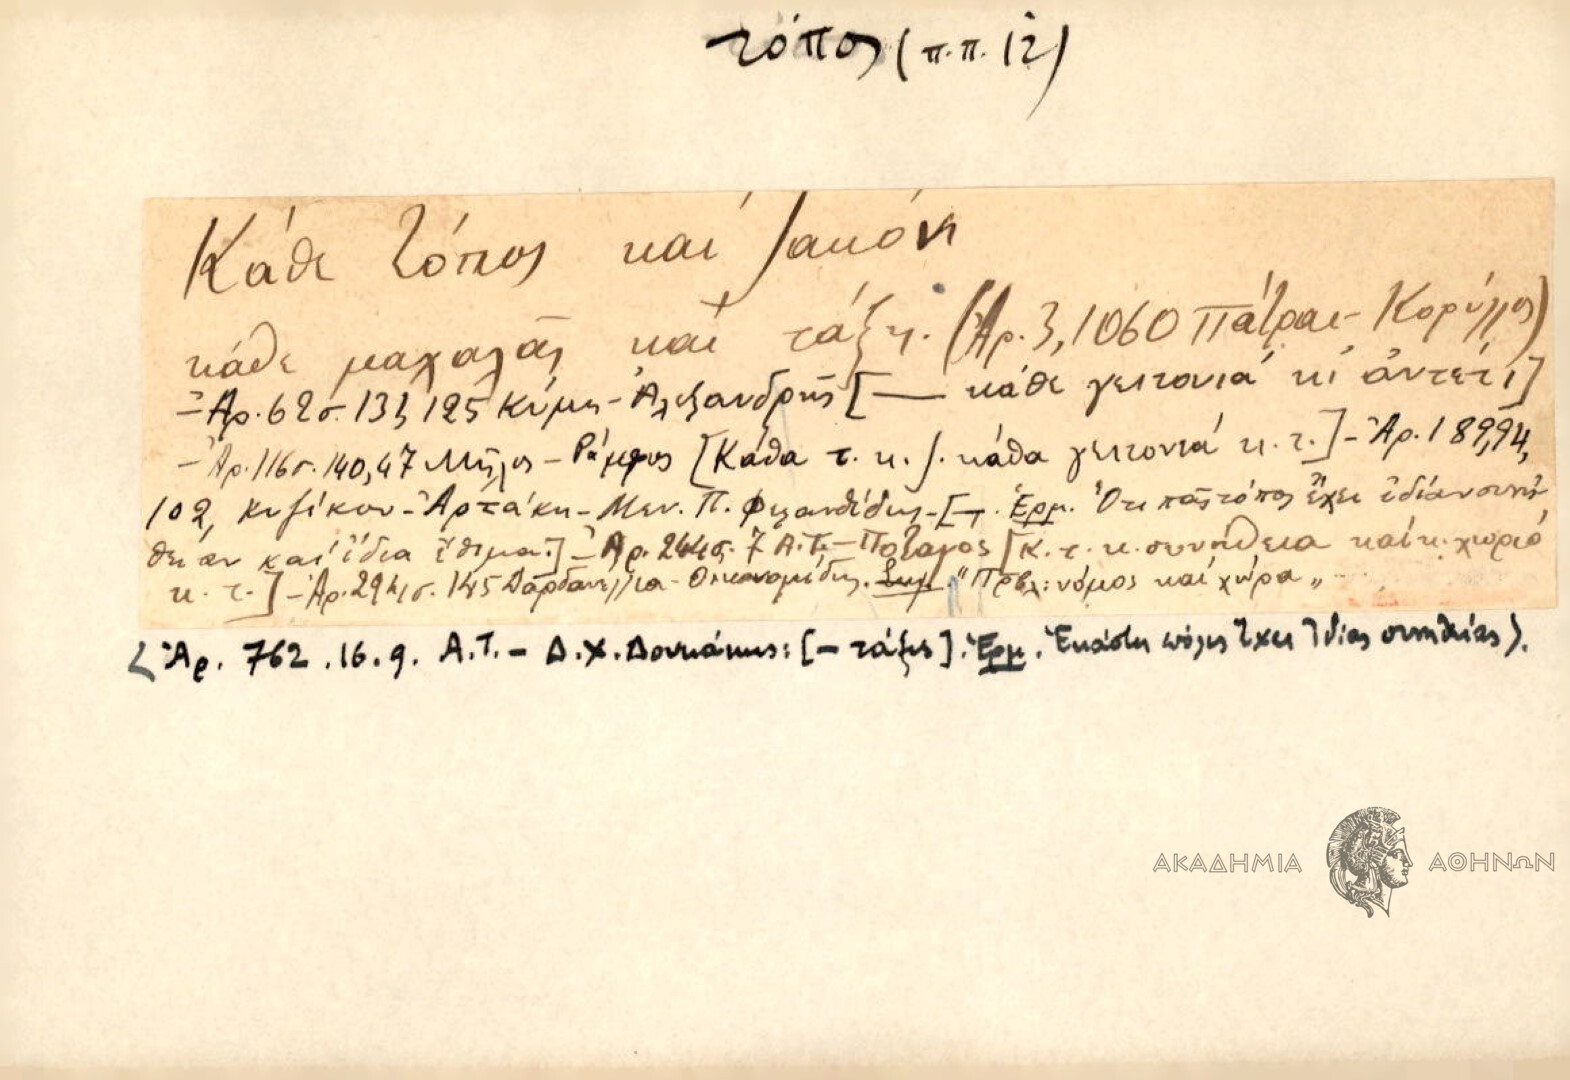 τόπος (π.π. 12)
Κάθε τόπος καὶ ζακόνι
κάθε μαχαλᾶς καὶ τάξι. (Ἀρ. 3, 1060 Πάτραι - Κορύλλος)
- Ἀρ. 62 σ. 13, 125 Κύμη - Ἀλεξανδρῆς [— κάθε γειτονιά κι ἀντέτι]
- Ἀρ. 116 σ. 140, 47 Μῆλος - Ράμφος [Κάθα τ. κ. ζ. κάθα γειτονιά κ. τ.] - Ἀρ. 189, 94,
102, Κυζίκου - Ἀρτάκη - Μεν. Π. Φιλανθίδης - [—. Ἑρμ. Ὅτι πᾶς τόπος ἔχει ἰδίαν συνή-
θειαν καὶ ἴδια ἔθιμα.] - Ἀρ. 244 σ. 7 Α.Τ. - Ποταγός [Κ. τ. κ. συνήθεια καὶ κ. χωριό
κ. τ.] - Ἀρ. 294 σ. 145 Δαρδανέλλια - Οἰκονομίδης. Σημ. "Πρβλ: νόμος καὶ χώρα"
<Ἀρ. 762. 16. 9. Α.Τ. - Δ.Χ. Δουκάκης: [- τάξις]. Ἑρμ. Ἑκάστη πόλις ἔχει ἰδίας συνηθείας>.
ΑΚΑΔΗΜΙΑ ΑΘΗΝΩΝ